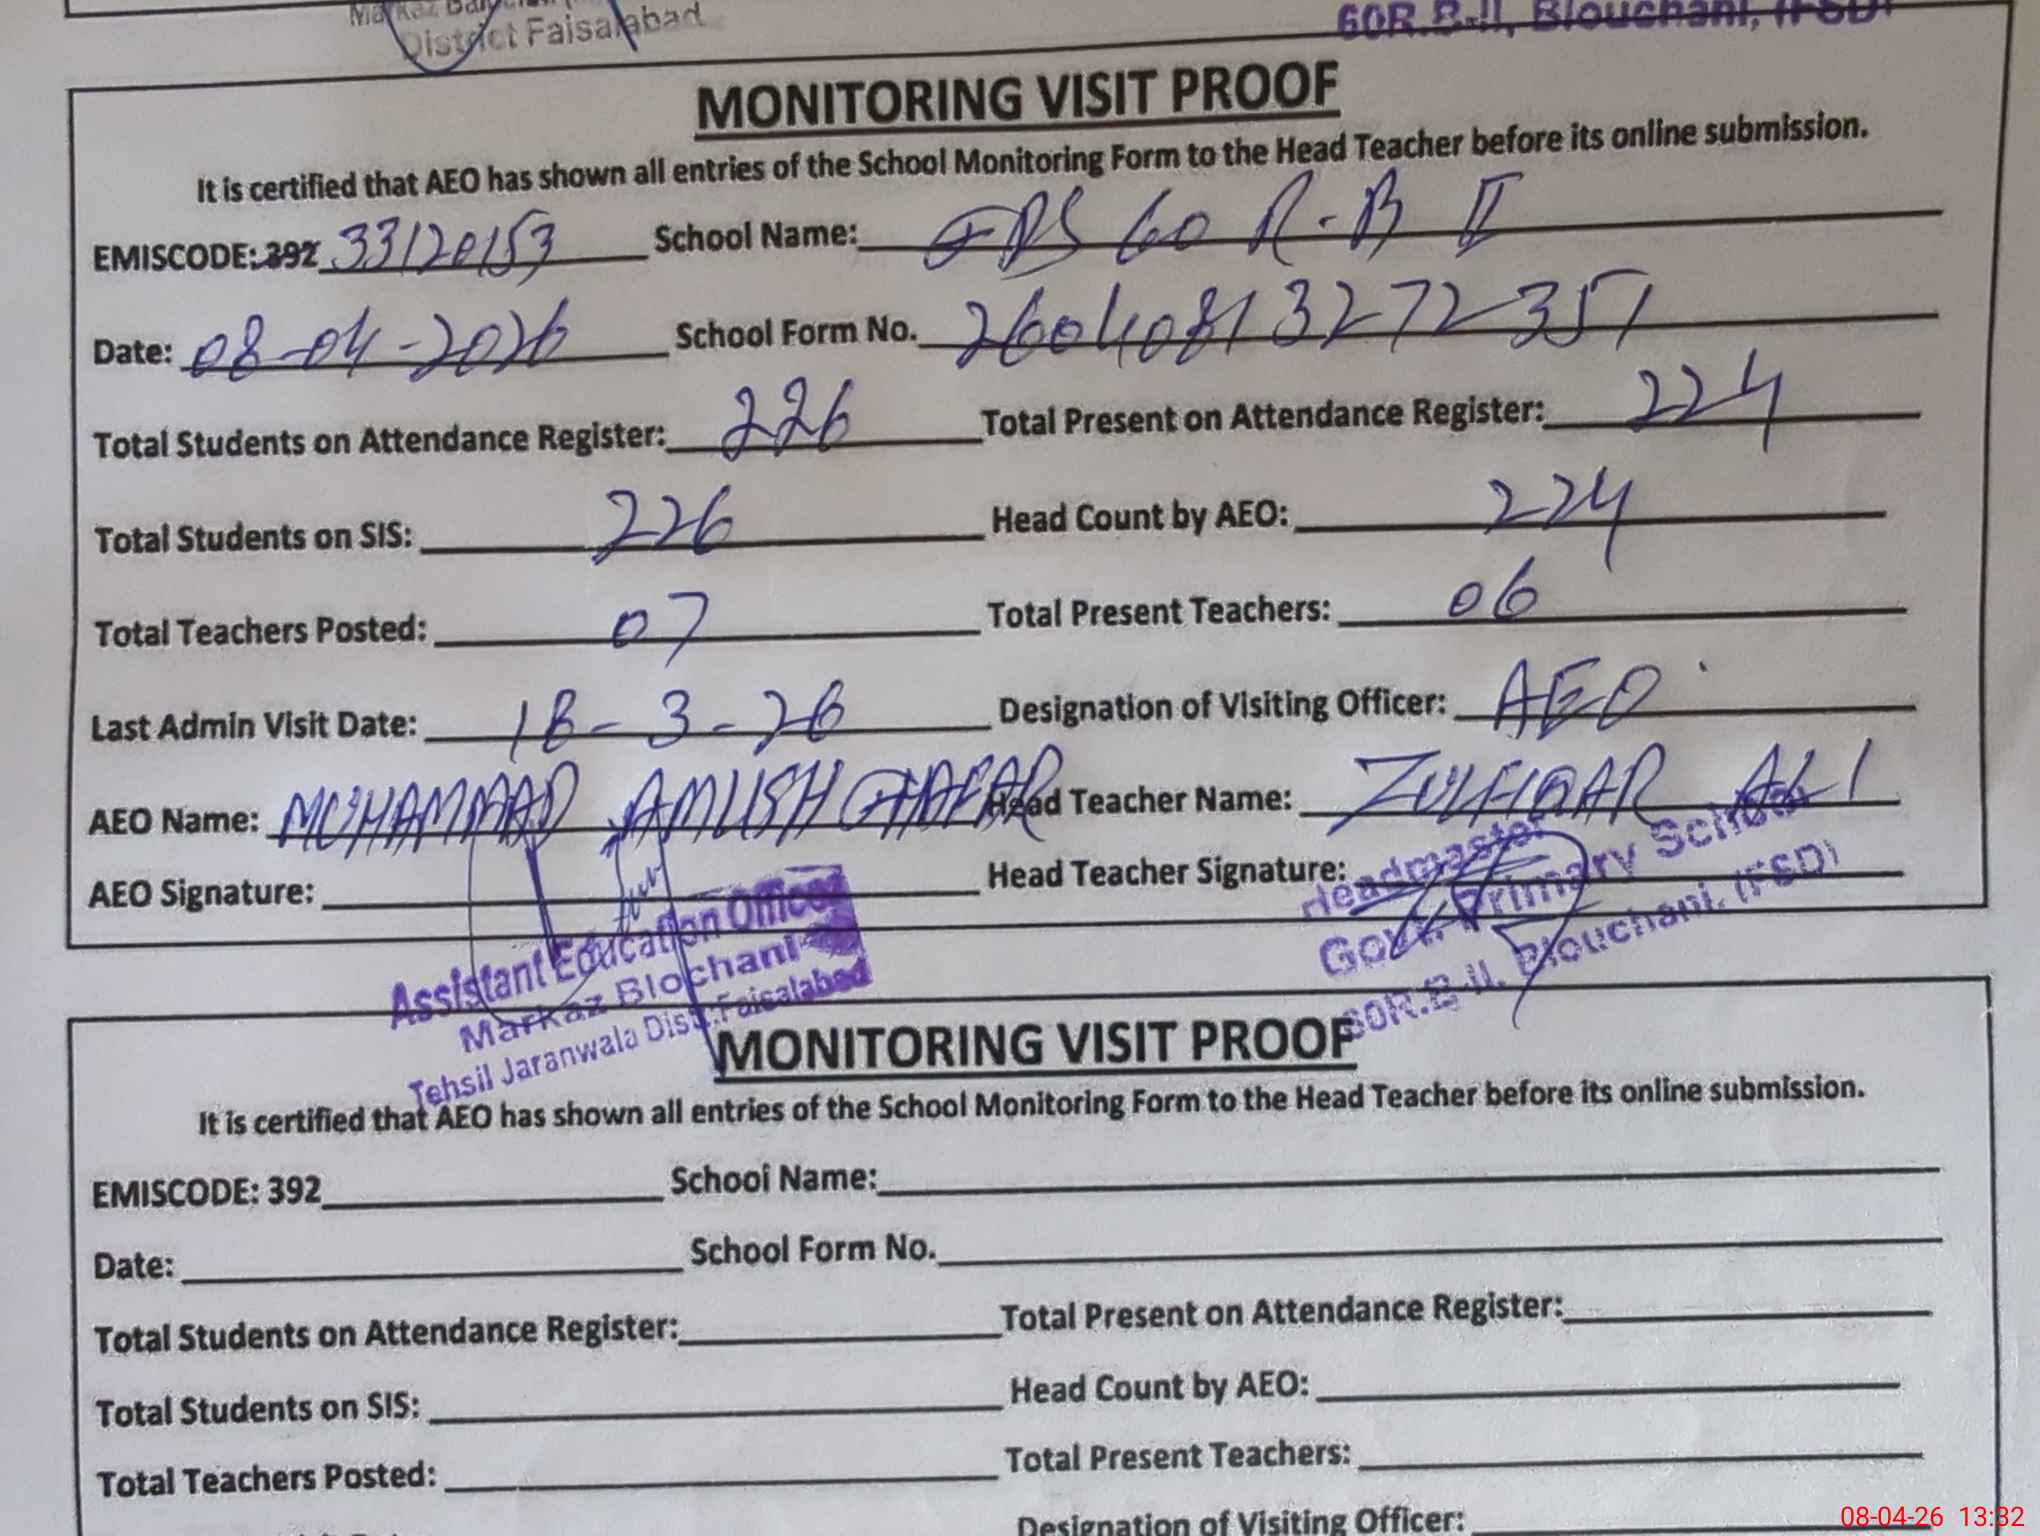 District Faisalabad
60R.B-II, Blouchani, (FSD)
MONITORING VISIT PROOF
It is certified that AEO has shown all entries of the School Monitoring Form to the Head Teacher before its online submission.
EMISCODE: 392 33120153 School Name: GPS 60 R-B II
Date: 08-04-2026 School Form No. 2604081327235 1
Total Students on Attendance Register: 226 Total Present on Attendance Register: 224
Total Students on SIS: 226 Head Count by AEO: 224
Total Teachers Posted: 07 Total Present Teachers: 06
Last Admin Visit Date: 18-3-26 Designation of Visiting Officer: AEO
AEO Name: MUHAMMAD Head Teacher Name: ZULFIQAR ALI
AEO Signature: Head Teacher Signature:
Assistant Education Officer
Markaz Blochani
Tehsil Jaranwala Dist: Faisalabad
Headmaster
Govt. Primary School
60R.B-II, Blouchani, (FSD)
MONITORING VISIT PROOF
It is certified that AEO has shown all entries of the School Monitoring Form to the Head Teacher before its online submission.
EMISCODE: 392 School Name:
Date: School Form No.
Total Students on Attendance Register: Total Present on Attendance Register:
Total Students on SIS: Head Count by AEO:
Total Teachers Posted: Total Present Teachers:
Designation of Visiting Officer:
08-04-26 13:32